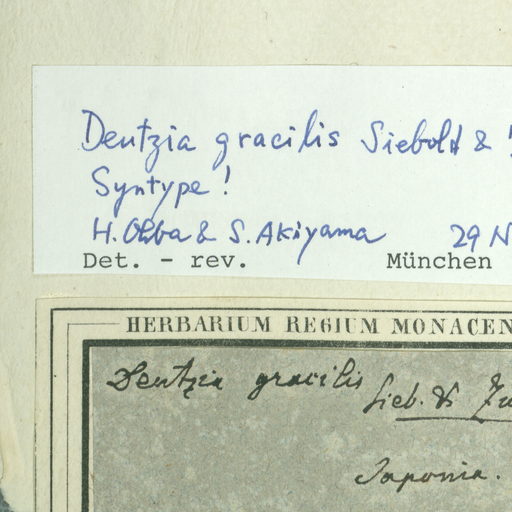 Deutzia gracilis Siebold &
Syntype!
H. Ohba & S. Akiyama 29 N
Det. - rev. München
HERBARIUM REGIUM MONACEN
Deutzia gracilis
Sieb. & Zu
Japonia.